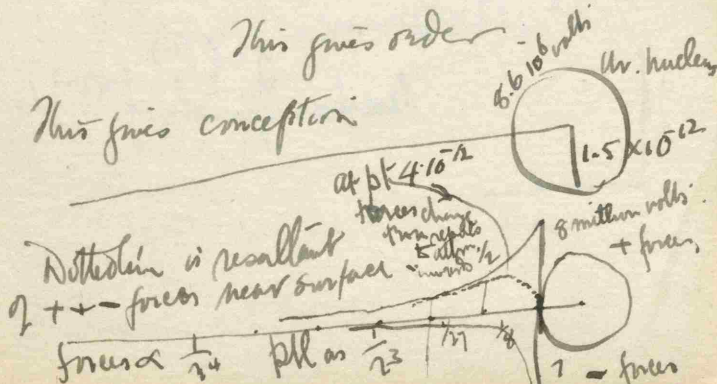 This gives order
8.6 10^6 volts
Ur. nucleus
This gives conception
1.5 × 10^-12
at pt 4·10^-12
forces change
from repuls
to attrn.
inwards
1/2
8 million volts.
+ forces
Dotted line is resultant
of + + - forces near surface
1/27
1/8
forces ∝ 1/r^4 ptl as 1/r^3
- forces